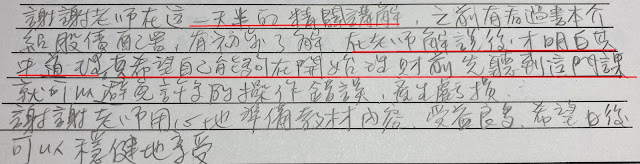 謝謝老師在這一天半的精闢講解，之前有看過書本介
紹股債配置，有初步了解，在老師解說後才明白其
中道理，要希望自己能夠在開始理財前先聽到這門課
就可以避免許多的操作錯誤，產生虧損．
謝謝老師用心地準備教材內容，受益良多．希望日後
可以穩健地享受